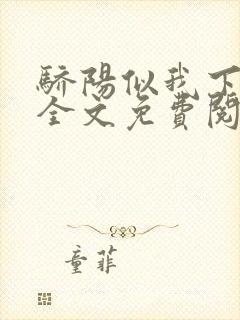 驕陽似我下
全文免費閱
童菲